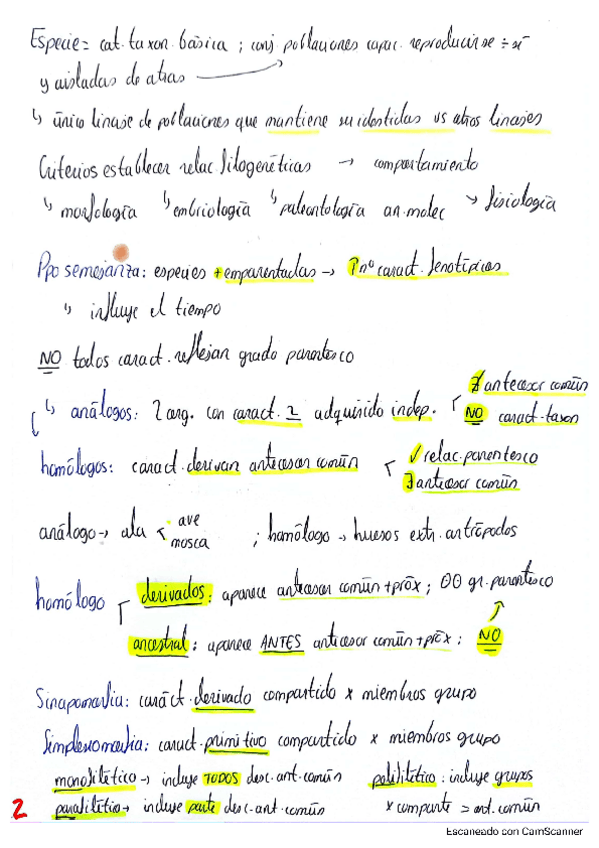 Especie = cat. taxon. básica ; conj. poblaciones capac. reproducirse ÷ sí
y aisladas de otras
↳ único linaje de poblaciones que mantiene su identidad vs otros linajes
Criterios establecer relac filogenéticas → comportamiento
↳ morfología ↳ embriología ↳ paleontología an. molec → fisiología
Ppo semejanza: especies + emparentadas → ↑ nº caract. fenotípicas
↳ influye el tiempo
NO todos caract. reflejan grado parentesco
↳ análogos: 2 org. con caract. adquirido indep. ∄ antecesor común
NO caract. taxon
homólogos: caract. derivan antecesor común ✓ relac. parentesco
∃ antecesor común
análogo → ala ave ; homólogo → huesos extr. antrópodos
mosca
homólogo derivados: aparece antecesor común + próx ; gr. parentesco
ancestral: aparece ANTES antecesor común + próx ; NO
Sinapomorfia: caráct. derivado compartido x miembros grupo
Simplesiomorfia: caract. primitivo compartido x miembros grupo
monofilético → incluye TODOS desc. ant. común polifilético: incluye grupos
parafilético → incluye parte desc. ant. común x comparte = ant. común
2
Escaneado con CamScanner